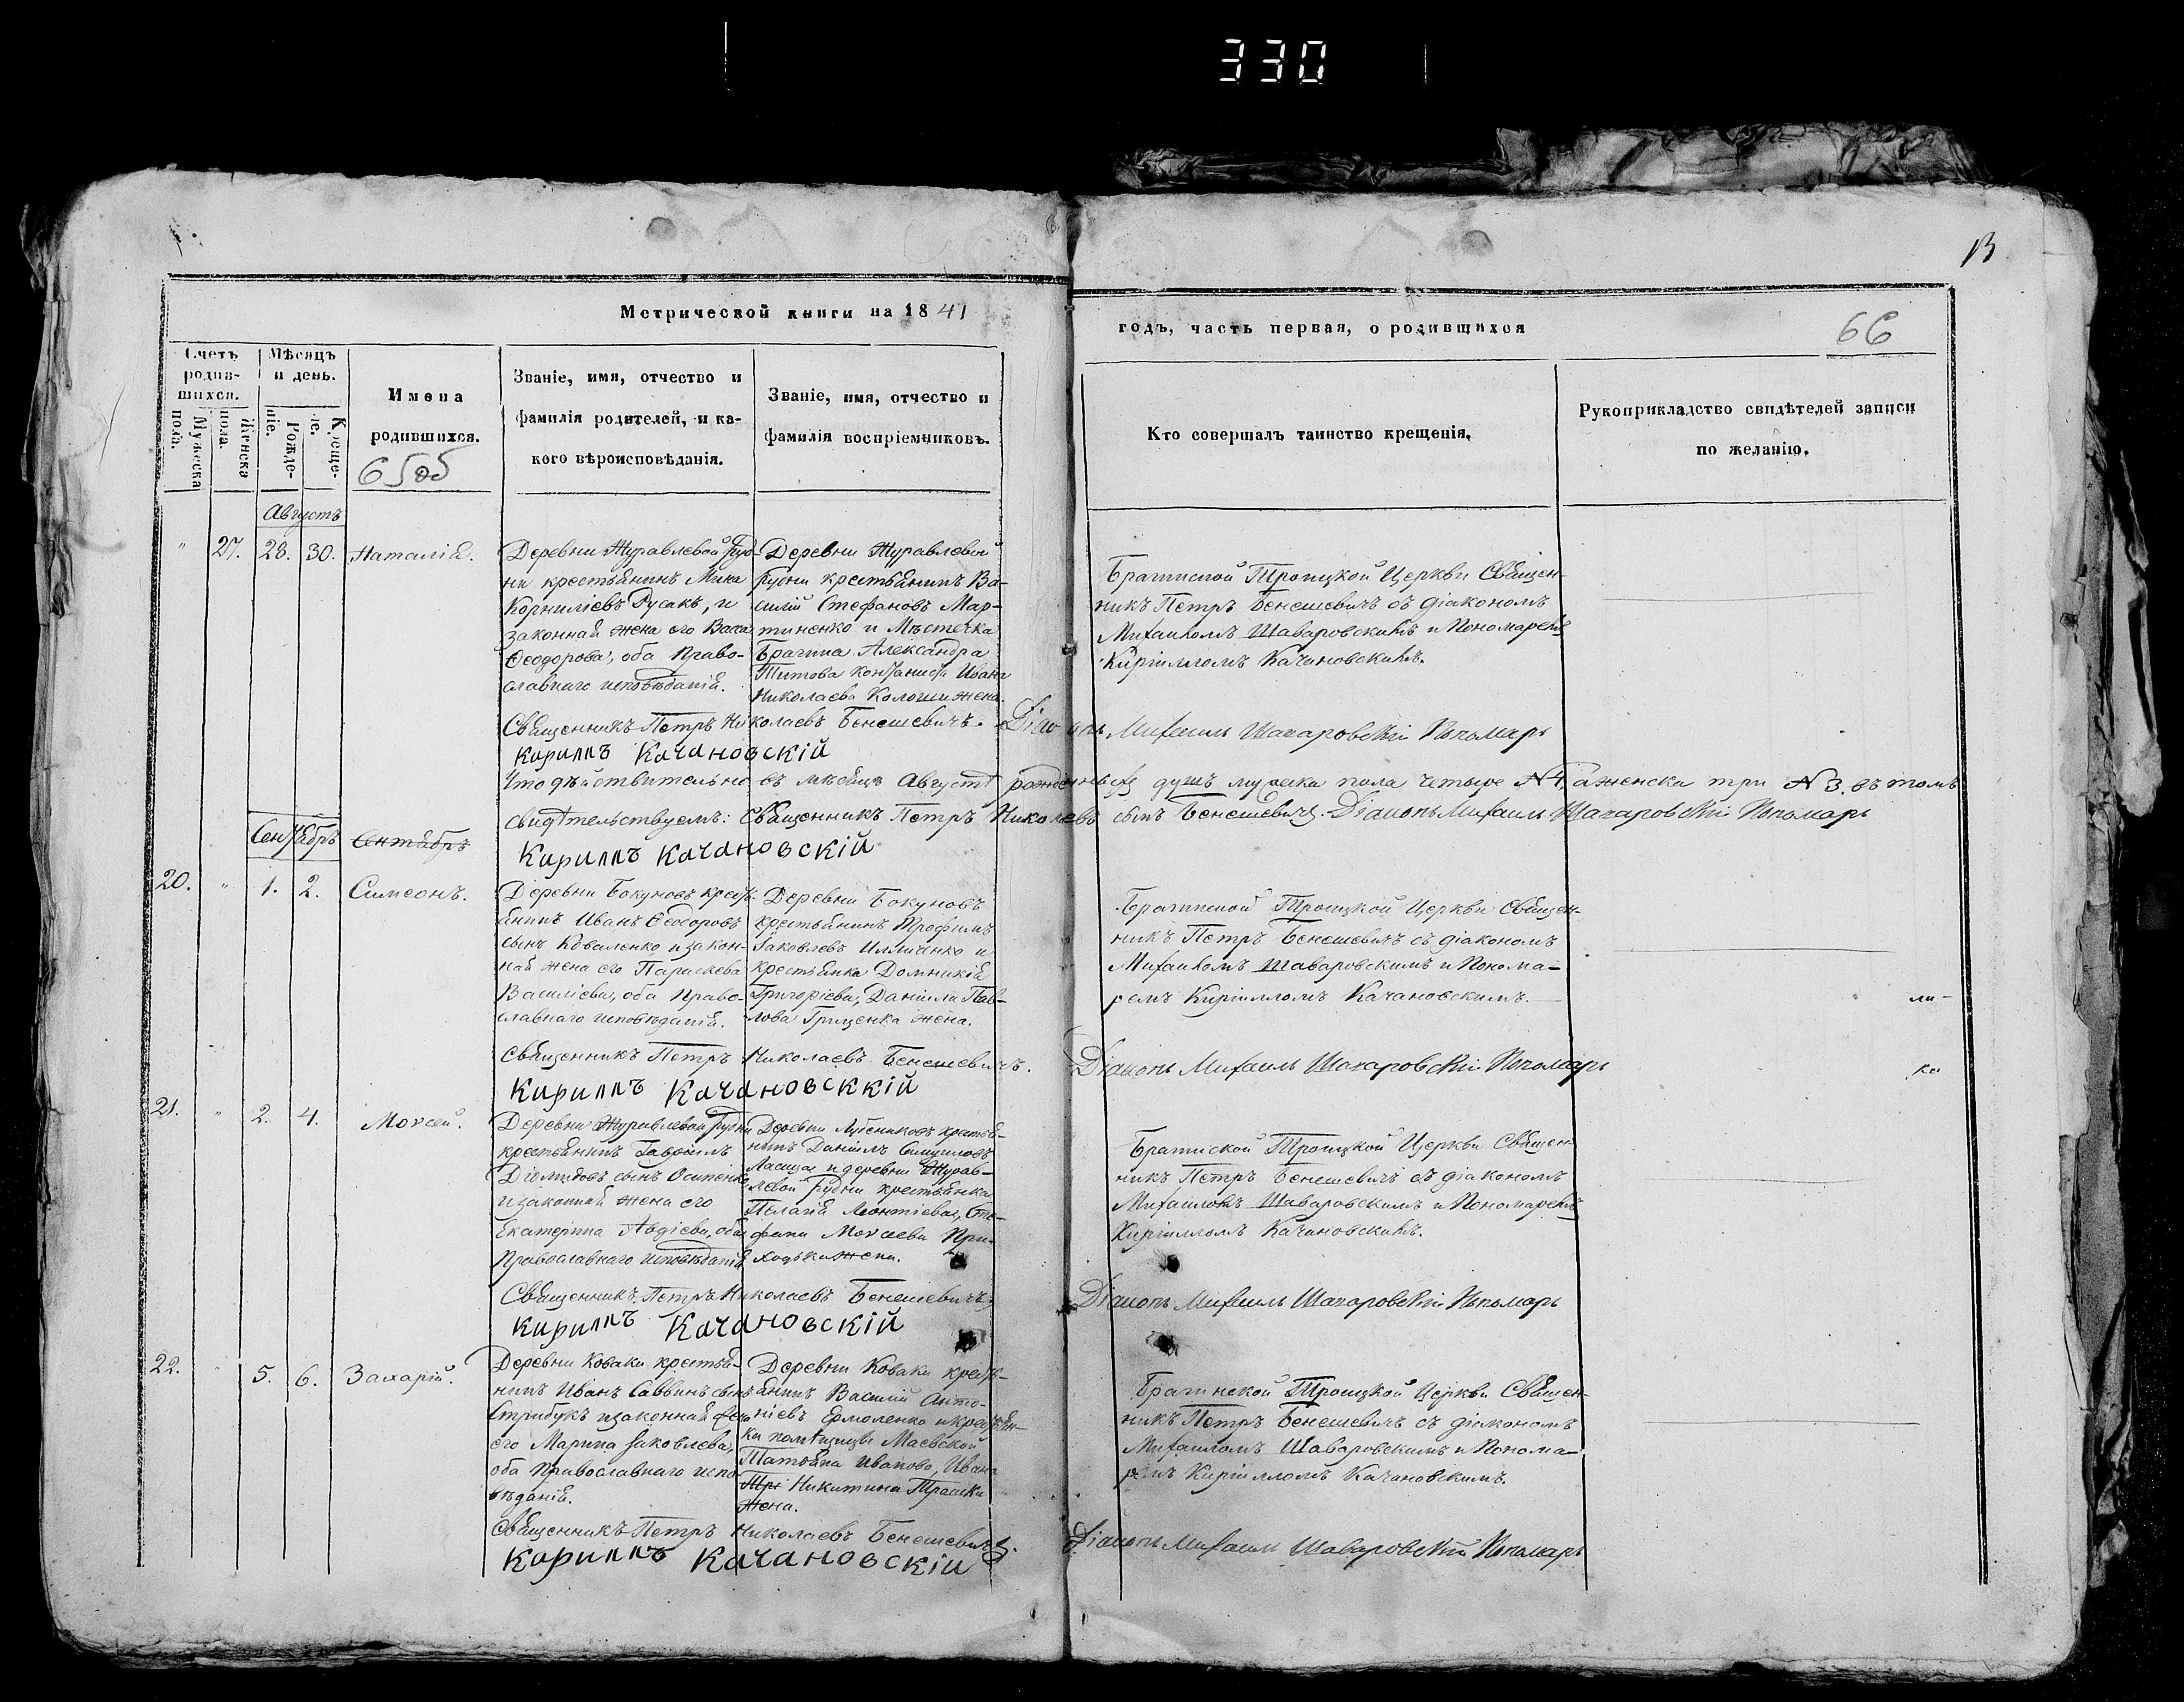 330
13
Метрической книги на 1841
годъ, часть первая, о родившихся
66
Счетъ родив-шихся.
Мужеска пола.
Женска пола.
Мѣсяцъ и день.
Рожде-ніе.
Креще-ніе.
Имена
родившихся.
65об
Званіе, имя, отчество и
фамилія родителей, и ка-
кого вѣроисповѣданія.
Званіе, имя, отчество и
фамилія воспріемниковъ.
Кто совершалъ таинство крещенія.
Рукоприкладство свидѣтелей записи
по желанію.
Августъ
" 27. 28. 30. Наталія.
Деревни Журавлевой Руд-
ни крестьянинъ Мина
Корниліевъ Русакъ, и
законная жена его Васса
Ѳеодорова, оба Право-
славнаго исповѣданія.
Деревни Журавлевой
Рудни крестьянинъ Ва-
силій Стефановъ Мар-
тиненко и Мѣстечка
Брагина Александра
Титова Ивана
Николаева Колоши жена.
Брагинской Троицкой Церкви Священ-
никъ Петръ Бенешевичъ съ діакономъ
Михаиломъ Шаваровскимъ и Пономаремъ
Кирилломъ Качановскимъ.
Священникъ Петръ Николаевъ Бенешевичъ. Діаконъ Михаилъ Шаваровскій Пономарь
Кириллъ Качановскій
Что дѣйствительно въ мѣсяцѣ Августѣ рожденныхъ душъ мужеска пола четыре №4, а женска три №3. въ томъ
свидѣтельствуемъ: Священникъ Петръ Николаевъ сынъ Бенешевичъ. Діаконъ Михаилъ Шаваровскій Пономарь
Кириллъ Качановскій
Сентябрь Сентябрь
20. " 1. 2. Симеонъ.
Деревни Бакуновъ крест-
янинъ Иванъ Ѳеодоровъ
сынъ Коваленко и закон-
ная жена его Параскева
Василіева, оба Право-
славнаго исповѣданія.
Деревни Бакуновъ
крестьянинъ Трофимъ
Іаковлевъ Илличенко и
крестьянка Домникія
Григоріева, Даніила Пав-
лова Гриценка жена.
Брагинской Троицкой Церкви Священ-
никъ Петръ Бенешевичъ съ діакономъ
Михаиломъ Шаваровскимъ и Понома-
ремъ Кирилломъ Качановскимъ.
ли-
ка
Священникъ Петръ Николаевъ Бенешевичъ. Діаконъ Михаилъ Шаваровскій Пономарь
Кириллъ Качановсккій
21. " 2. 4. Моѵсей.
Деревни Журавлевой Рудни
крестьянинъ Гавріилъ
Діомидовъ сынъ Остенко
и законная жена его
Екатерина Авдіева, оба
Православнаго исповѣданія
крестья-
нинъ Даніилъ
и деревни Журав-
левой Рудни крестьянка
Пелагія Леонтіева, Сте-
фана Моѵсеева При-
ходька жена.
Брагинской Троицкой Церкви Священ-
никъ Петръ Бенешевичъ съ діакономъ
Михаиломъ Шаваровскимъ и Пономаремъ
Кирилломъ Качановскимъ.
Священникъ Петръ Николаевъ Бенешевичъ. Діаконъ Михаилъ Шаваровскій Пономарь
Кириллъ Качановскій
22. " 5. 6. Захарій.
Деревни Коваки крестья-
нинъ Иванъ Саввинъ сынъ
Стрибукъ и законная жена
его Марина Іаковлева,
оба Православнаго испо-
вѣданія.
Деревни Коваки крест-
янинъ Василій Анто-
ніевъ Ермоленко и крестьян-
ка помѣщицы Маевской
Татьяна Иванова, Ивана
Трі Никитина Трашки
жена.
Брагинской Троицкой Церкви Священ-
никъ Петръ Бенешевичъ съ діакономъ
Михаиломъ Шаваровскимъ и Понома-
ремъ Кирилломъ Качановскимъ.
Священникъ Петръ Николаевъ Бенешевичъ. Діаконъ Михаилъ Шаваровскій Пономарь
Кириллъ Качановскій